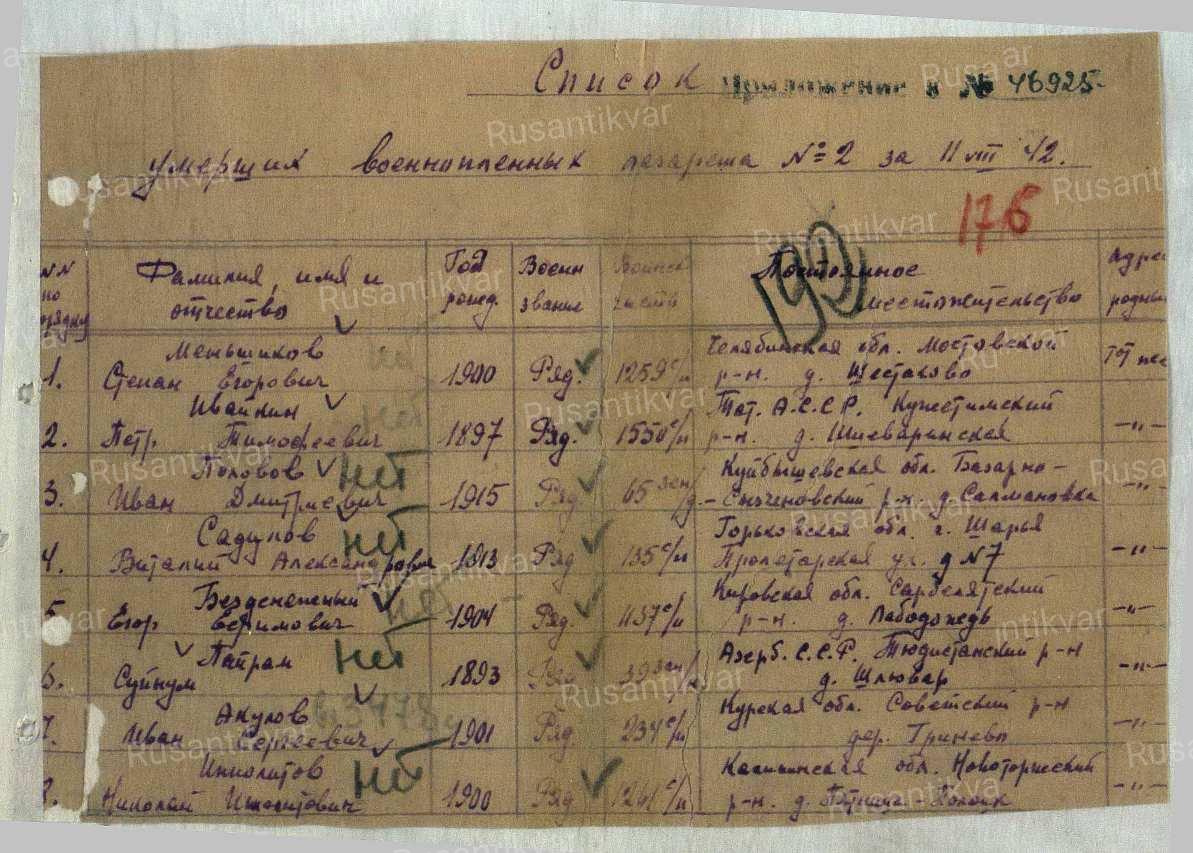 Список Приложение к № 46925
умерших военнопленных лазарета №2 за 11 VIII 42.
176
190
NN по порядку
Фамилия, имя и отчество
Год рожд.
Военн звание
Воинск часть
Постоянное местожительство
Адрес родных
1. Меньшиков
Степан Егорович 1900 Ряд. 1259 с/п Челябинская обл. Мостовской
р-н. д. Шестаково тот же
нет
2. Ивайкин
Петр Тимофеевич 1897 Ряд. 1550 с/п Тат. А.С.С.Р.
р-н. д. -"-
нет
3. Половов
Иван Дмитриевич 1915 Ряд 65 зен/д Куйбышевская обл. Базарно-
р-н. д. Салмановка -"-
нет
4. Садупов
Виталий Александрович 1913 Ряд 135 с/п Горьковская обл. г. Шарья
Пролетарская ул. д N7 -"-
нет
5. Безденежный
Егор 1904 Ряд 437 с/п Кировская обл.
р-н. д. -"-
нет
6. Пайрам
Суйнум 1893 39 зен/ Азерб. С.С.Р. р-н
д. Шлювар -"-
нет
7. Акулов
Иван Сергеевич 1901 Ряд. 234 с/п Курская обл. Советский р-н
дер. Гринево -"-
8. Ипполитов
Николай Ипполитович 1900 Ряд 1241 с/п Калининская обл. Новоторжский
р-н. д. -"-
нет
Rusantikvar